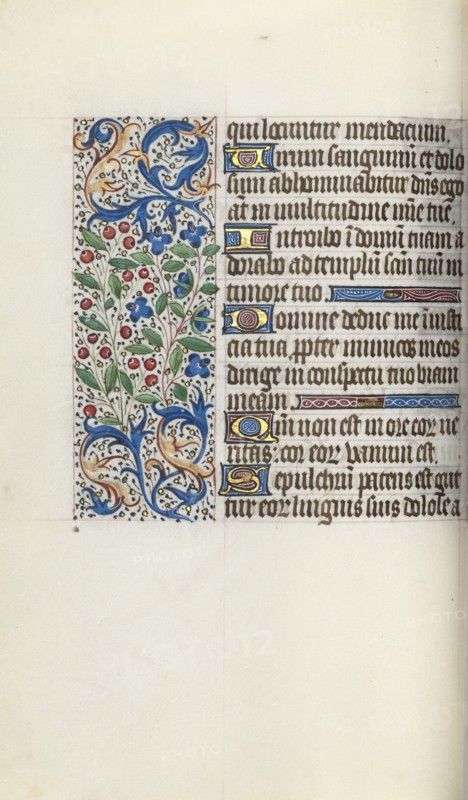 qui locuntur mendacium.
Virum sanguinum et dolo
sum abhominabitur dn̄s ego
āt in multitudine mīe tue.
Introibo ī domū tuam a
dorabo ad templū san̄ tuū in
timore tuo
Domine deduc me ī iusti
cia tua, ꝓpter inimicos meos
dirige in conspectu tuo viam
meam.
Qm̄ non est in ore eoꝝ ue
ritas: cor eoꝝ vanum est.
Sepulchrū patens est gut
tur eoꝝ linguis suis dolose a